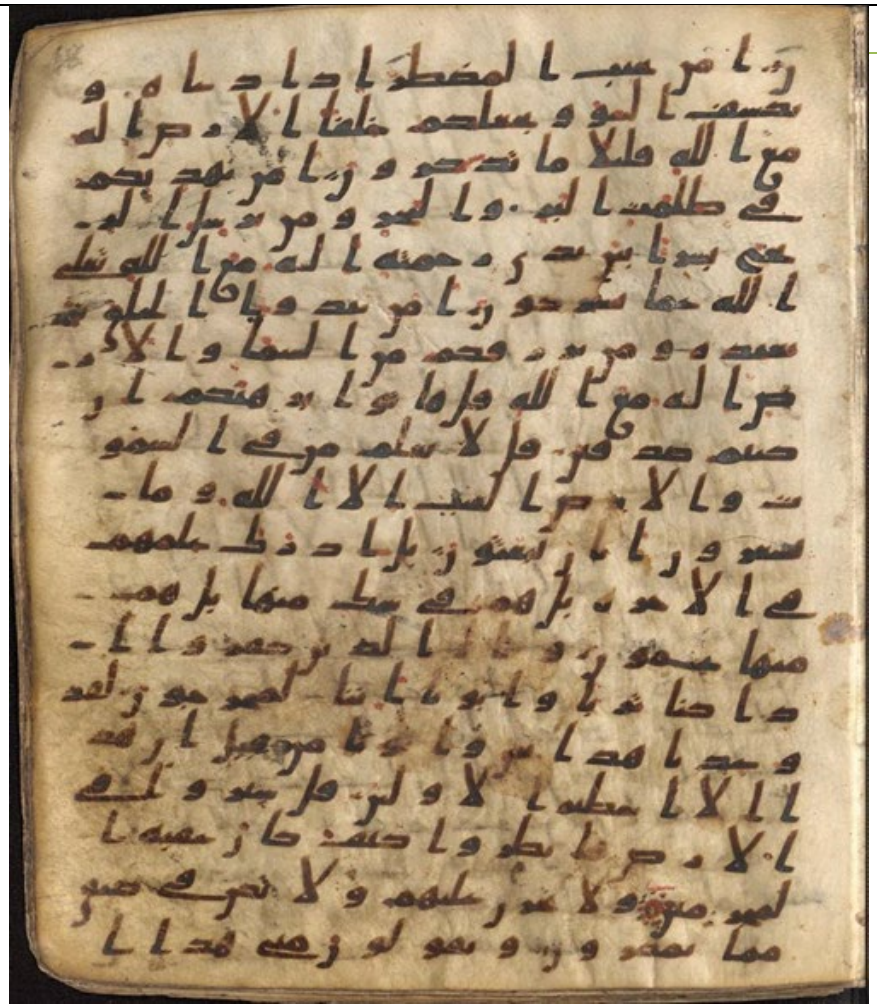 ن امن يجيب المضطر اذا دعاه و
يكشف السو ويجعلكم خلفا الارض اله
مع الله قليلا ما تذكرون امن يهديكم
في ظلمت البر والبحر ومن يرسل الر
يح بشرا بين يدي رحمته اله مع الله تعلى
الله عما يشركون امن يبدوا الخلق ثم
يعيده ومن يرزقكم من السما والار
ض اله مع الله قل هاتوا برهنكم ان
كنتم صدقين قل لا يعلم من في السمو
ت والارض الغيب الا الله وما
يشعرون ايان يبعثون بل ادرك علمهم
في الاخرة بل هم في شك منها بل هم
منها عمون وقال الذين كفروا ا
ذا كنا تربا واباونا اينا لمخرجون لقد
وعدنا هذا نحن واباونا من قبل ان هذ
ا الا اسطير الاولين قل سيروا في
الارض فانظروا كيف كان عقبة ا
لمجرمين ولا تحزن عليهم ولا تكن في ضيق
مما يمكرون ويقولون متى هذا ا